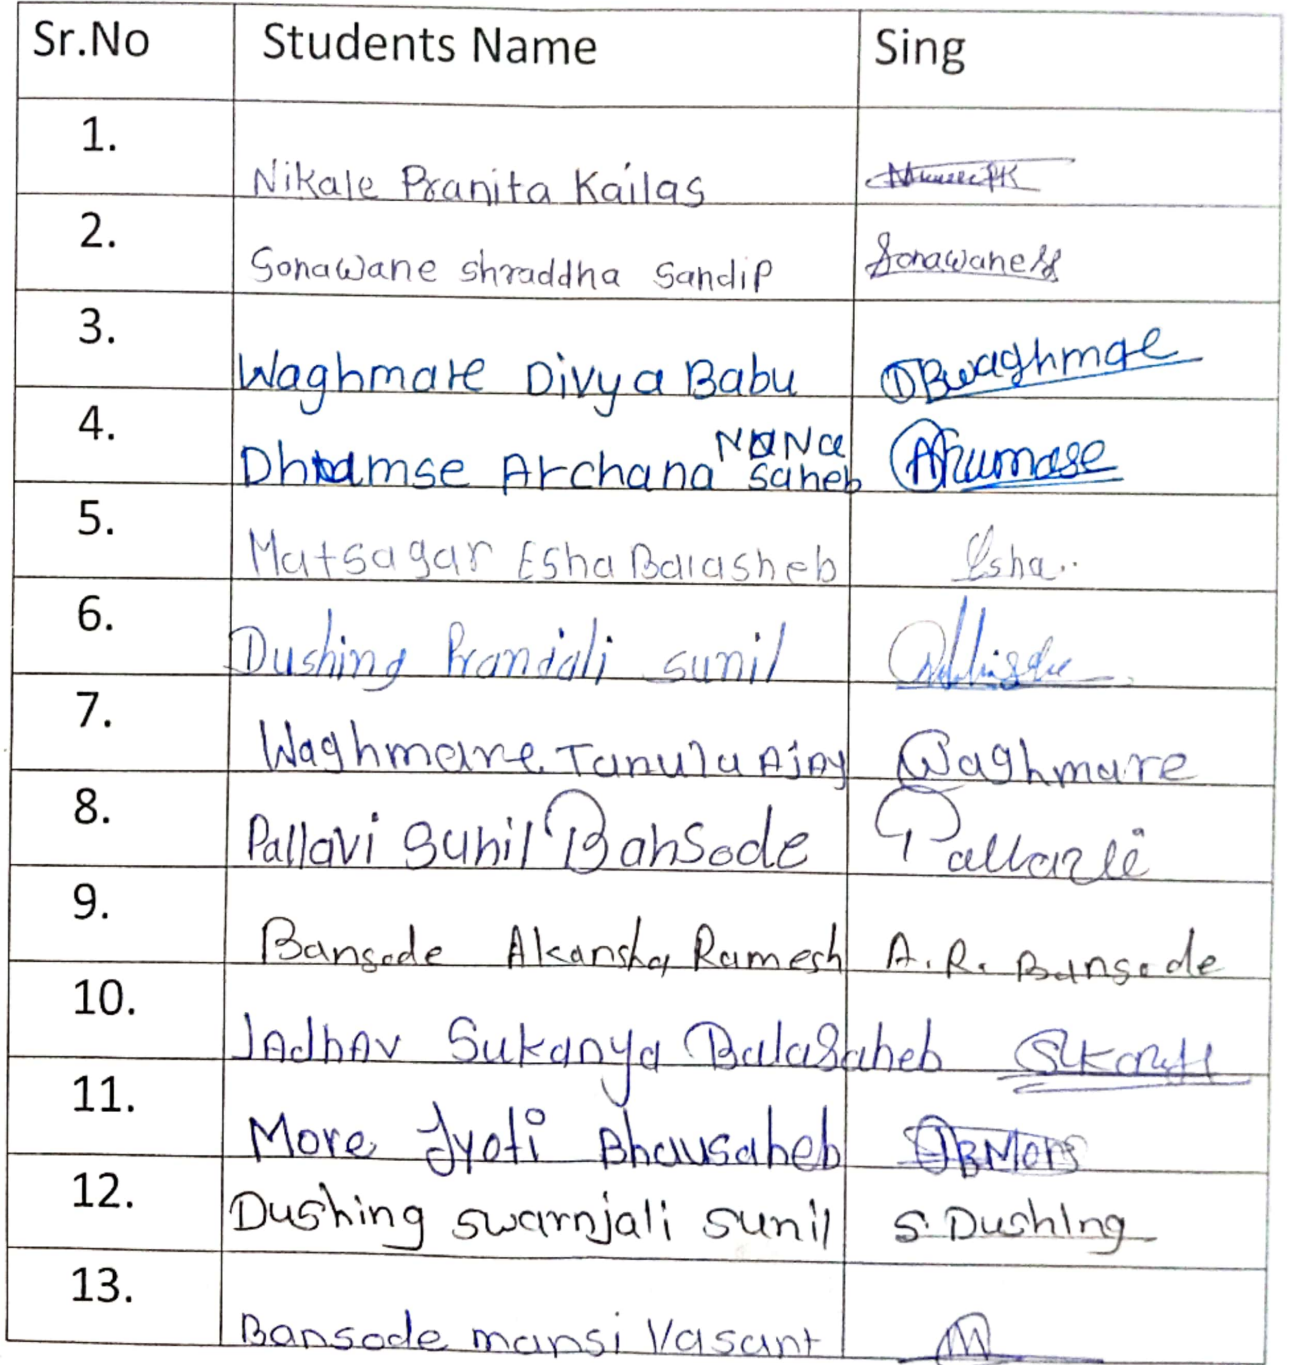 Sr.No Students Name Sing
1. Nikale Pranita Kailas
2. Sonawane shraddha Sandip Sonawane
3. Waghmare Divya Babu DBwaghmae
4. Archana NaNa saheb
5. Matsagar Esha Balasheb Esha..
6. Dushing Pranjali sunil
7. Waghmare Ajay Waghmare
8. Pallavi Sunil Bansode Pallavi
9. Bansode Akansha Ramesh A. R. Bansode
10. Jadhav Sukanya BalaSaheb
11. More Jyoti Bhausaheb JBMore
12. Dushing swarnjali sunil S. Dushing
13. Bansode mansi Vasant